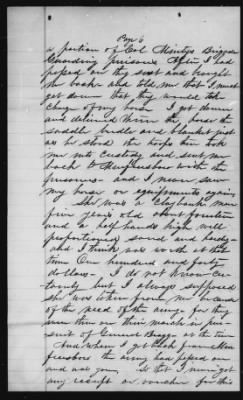 Pm 6
a portion of Col Mintys Brigade
Guarding prisoners After I had
passed on they sent and brought
me back and told me that I must
get down that they would take
charge of my horse I got down
and delivered them the horse the
saddle bridle and blanket just
as he stood the troops then took
me into custody and sent me
back to Murfreesboro with the
prisoners and I never saw
my horse or equipments again
She was a claybank mare
five years old about fourteen
and a half hands high well
proportioned sound and hardy
and I think was worth at the
time One hundred and forty
dollars I do not know cer-
tainly but I always supposed
she was taken from me because
of the need of the army for they
were then on their march in pur-
suit of General Bragg at the time
And when I got back from Mur-
freesboro the army had passed on
and was gone So that I never got
any receipt or voucher for this